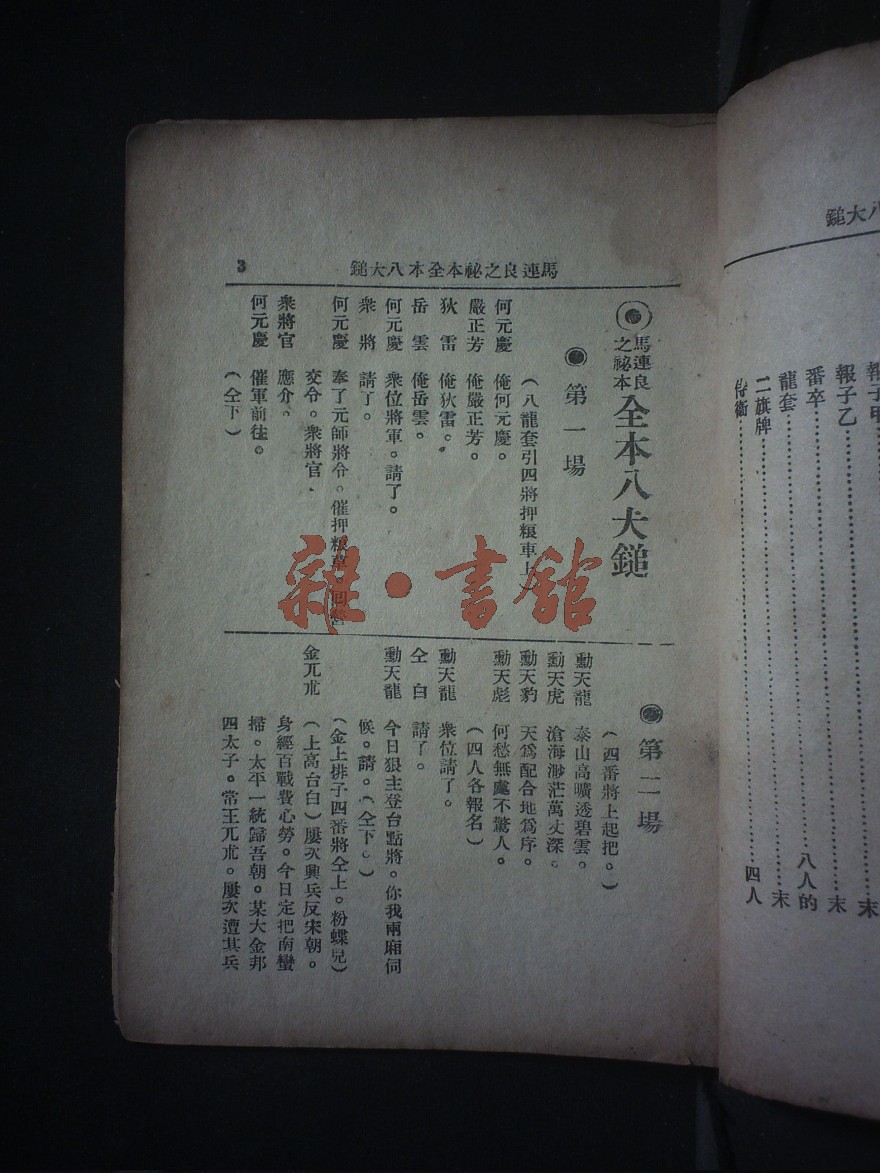 鎚大八
報子甲
報子乙……末
番卒……末
龍套……八人的
二旗牌……末
侍衛……四人
鎚大八本全本祕之良連馬
3
馬連良之祕本
全本八大鎚
第一場
(八龍套引四將押糧車上)
何元慶 俺何元慶。
嚴正芳 俺嚴正芳。
狄雷 俺狄雷。
岳雲 俺岳雲。
何元慶 衆位將軍。請了。
衆將 請了。
何元慶 奉了元帥將令。催押糧草 回營
交令。衆將官、
衆將官 應介。
何元慶 催軍前往。
(仝下)
第二場
(四番將上起把。)
勳天龍 泰山高曠透碧雲。
勳天虎 滄海渺茫萬丈深。
勳天豹 天爲配合地爲序。
勳天彪 何愁無處不驚人。
(四人各報名)
勳天龍 衆位請了。
仝白 請了。
勳天龍 今日狠主登台點將。你我兩廂伺
候。請。(仝下。)
(金上排子四番將仝上。粉蝶兒)
金兀朮 (上高台白)屢次興兵反宋朝。
身經百戰費心勞。今日定把南蠻
掃。太平一統歸吾朝。某大金邦
四太子。常王兀朮。屢次遭其兵
雜·書館